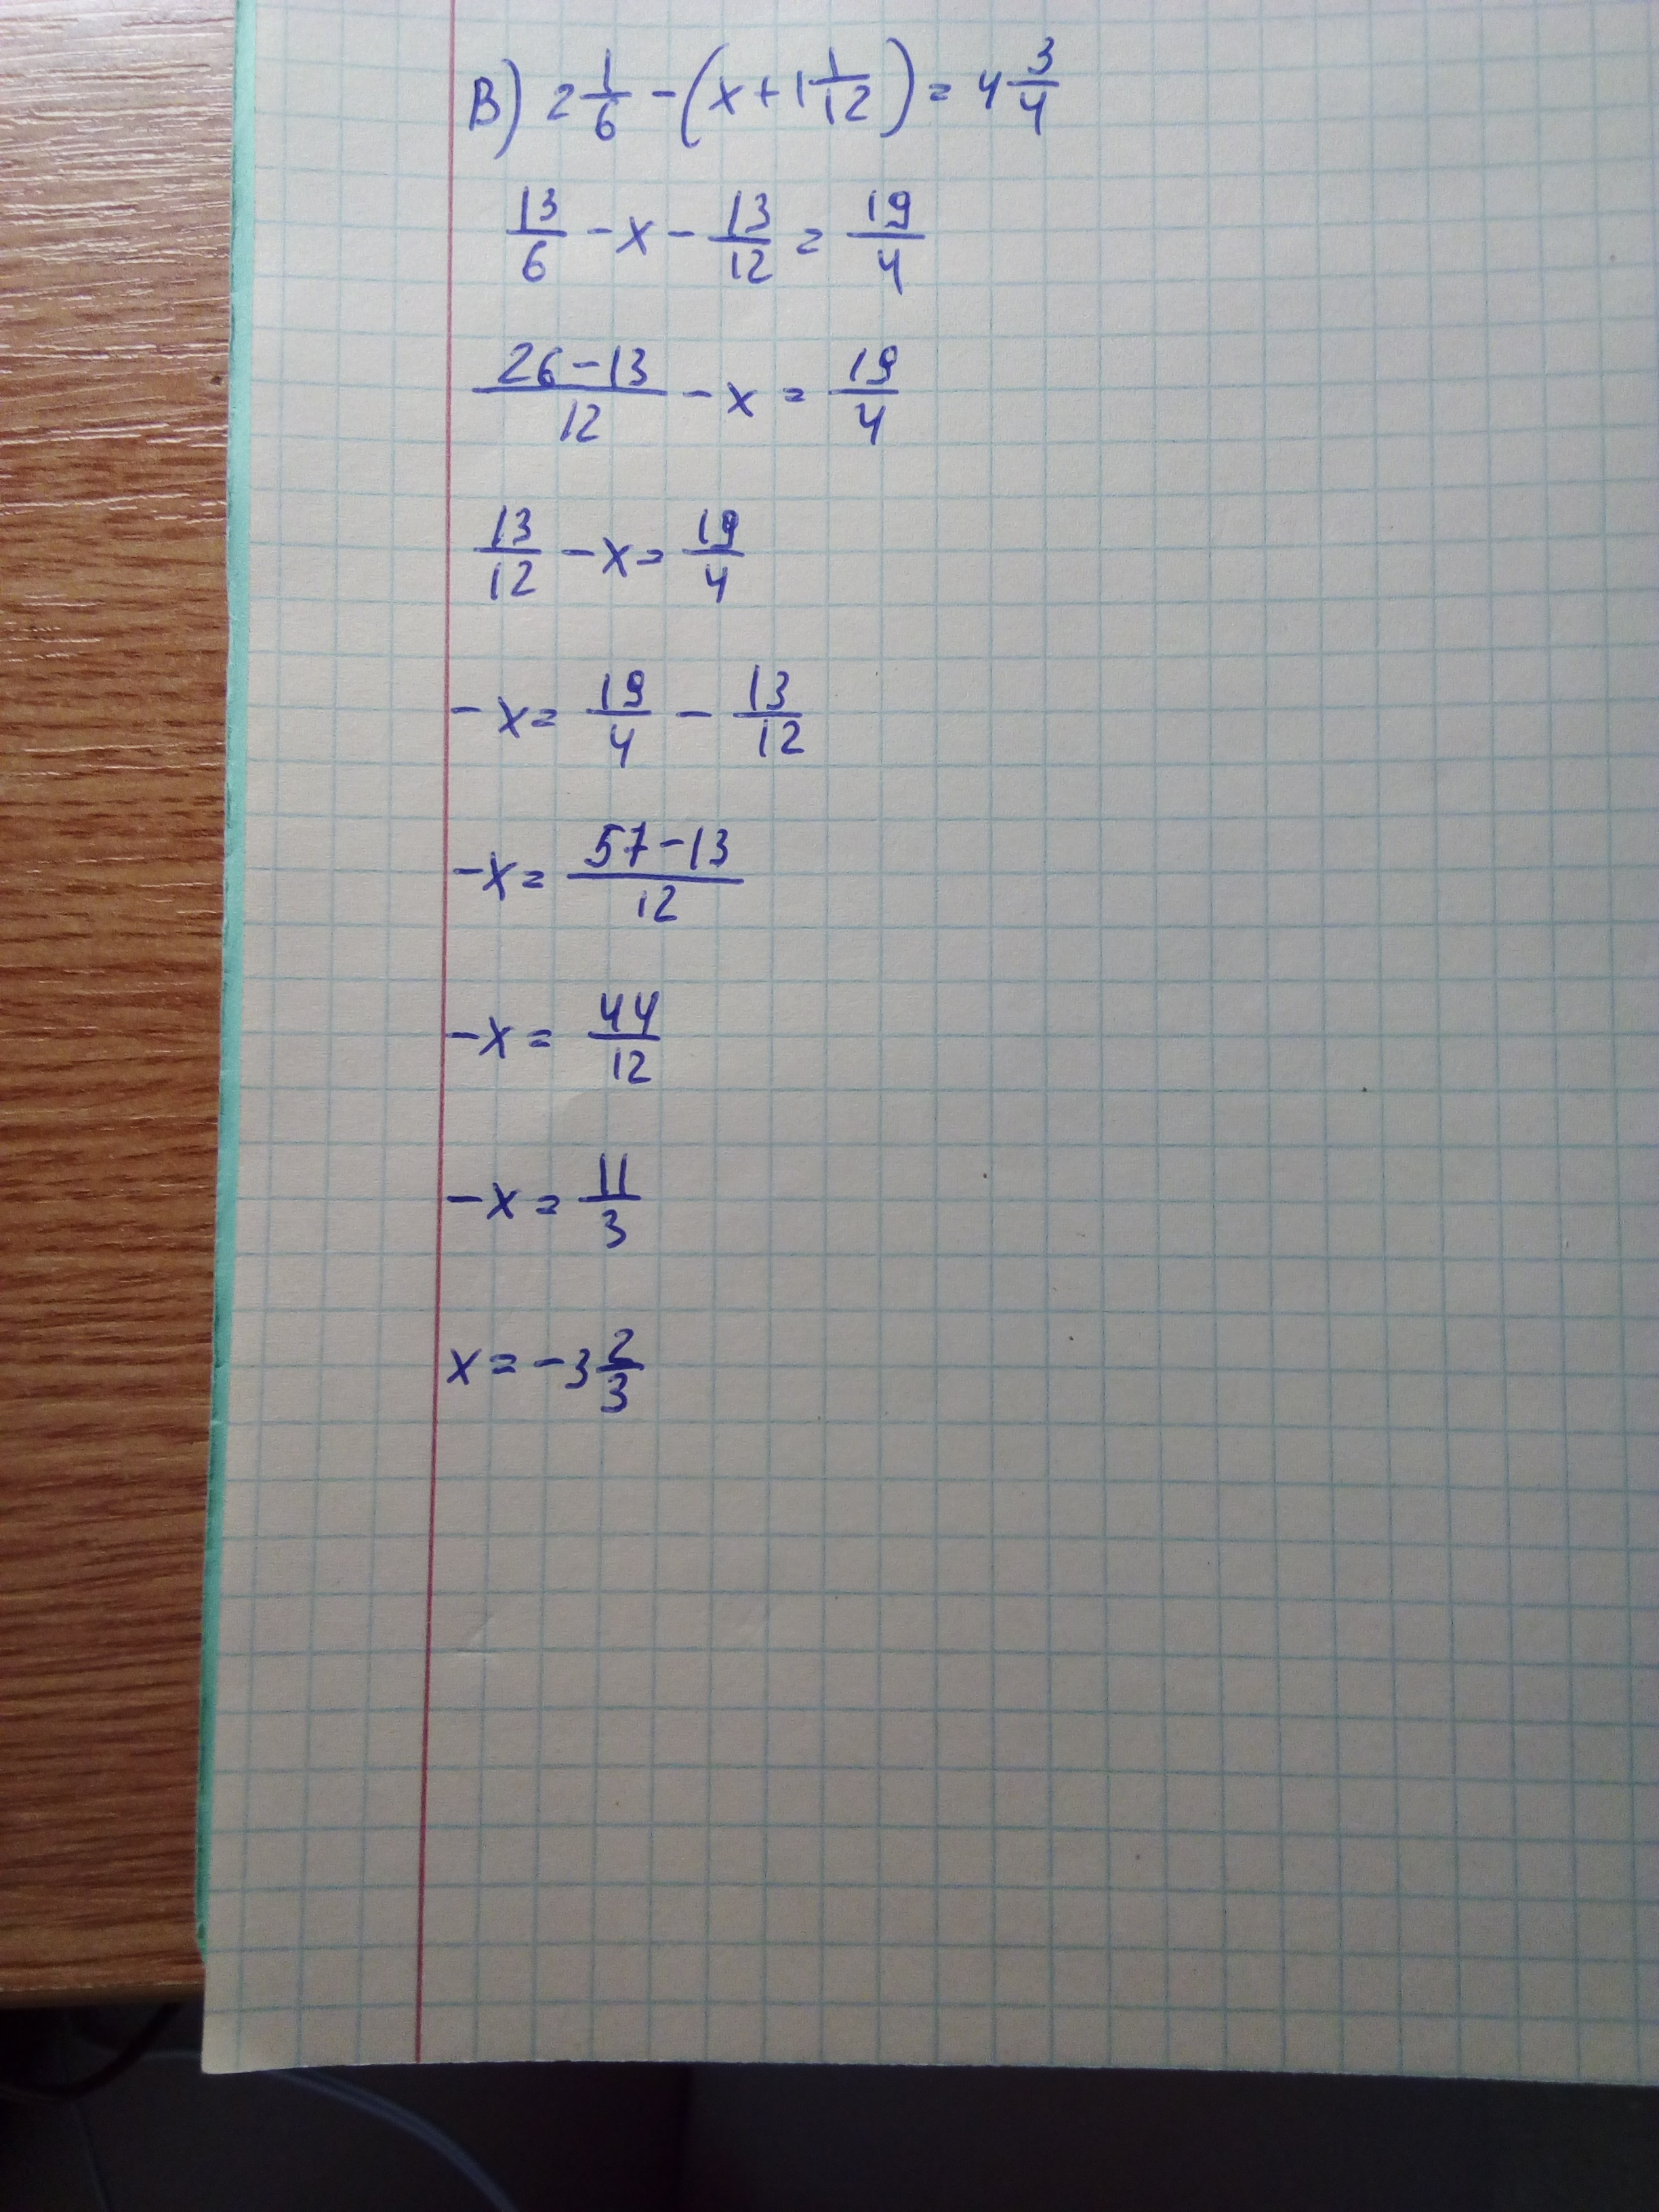 В) 2 1/6 - (x + 1 1/12) = 4 3/4
13/6 - x - 13/12 = 19/4
(26-13)/12 - x = 19/4
13/12 - x = 19/4
-x = 19/4 - 13/12
-x = (57-13)/12
-x = 44/12
-x = 11/3
x = -3 2/3